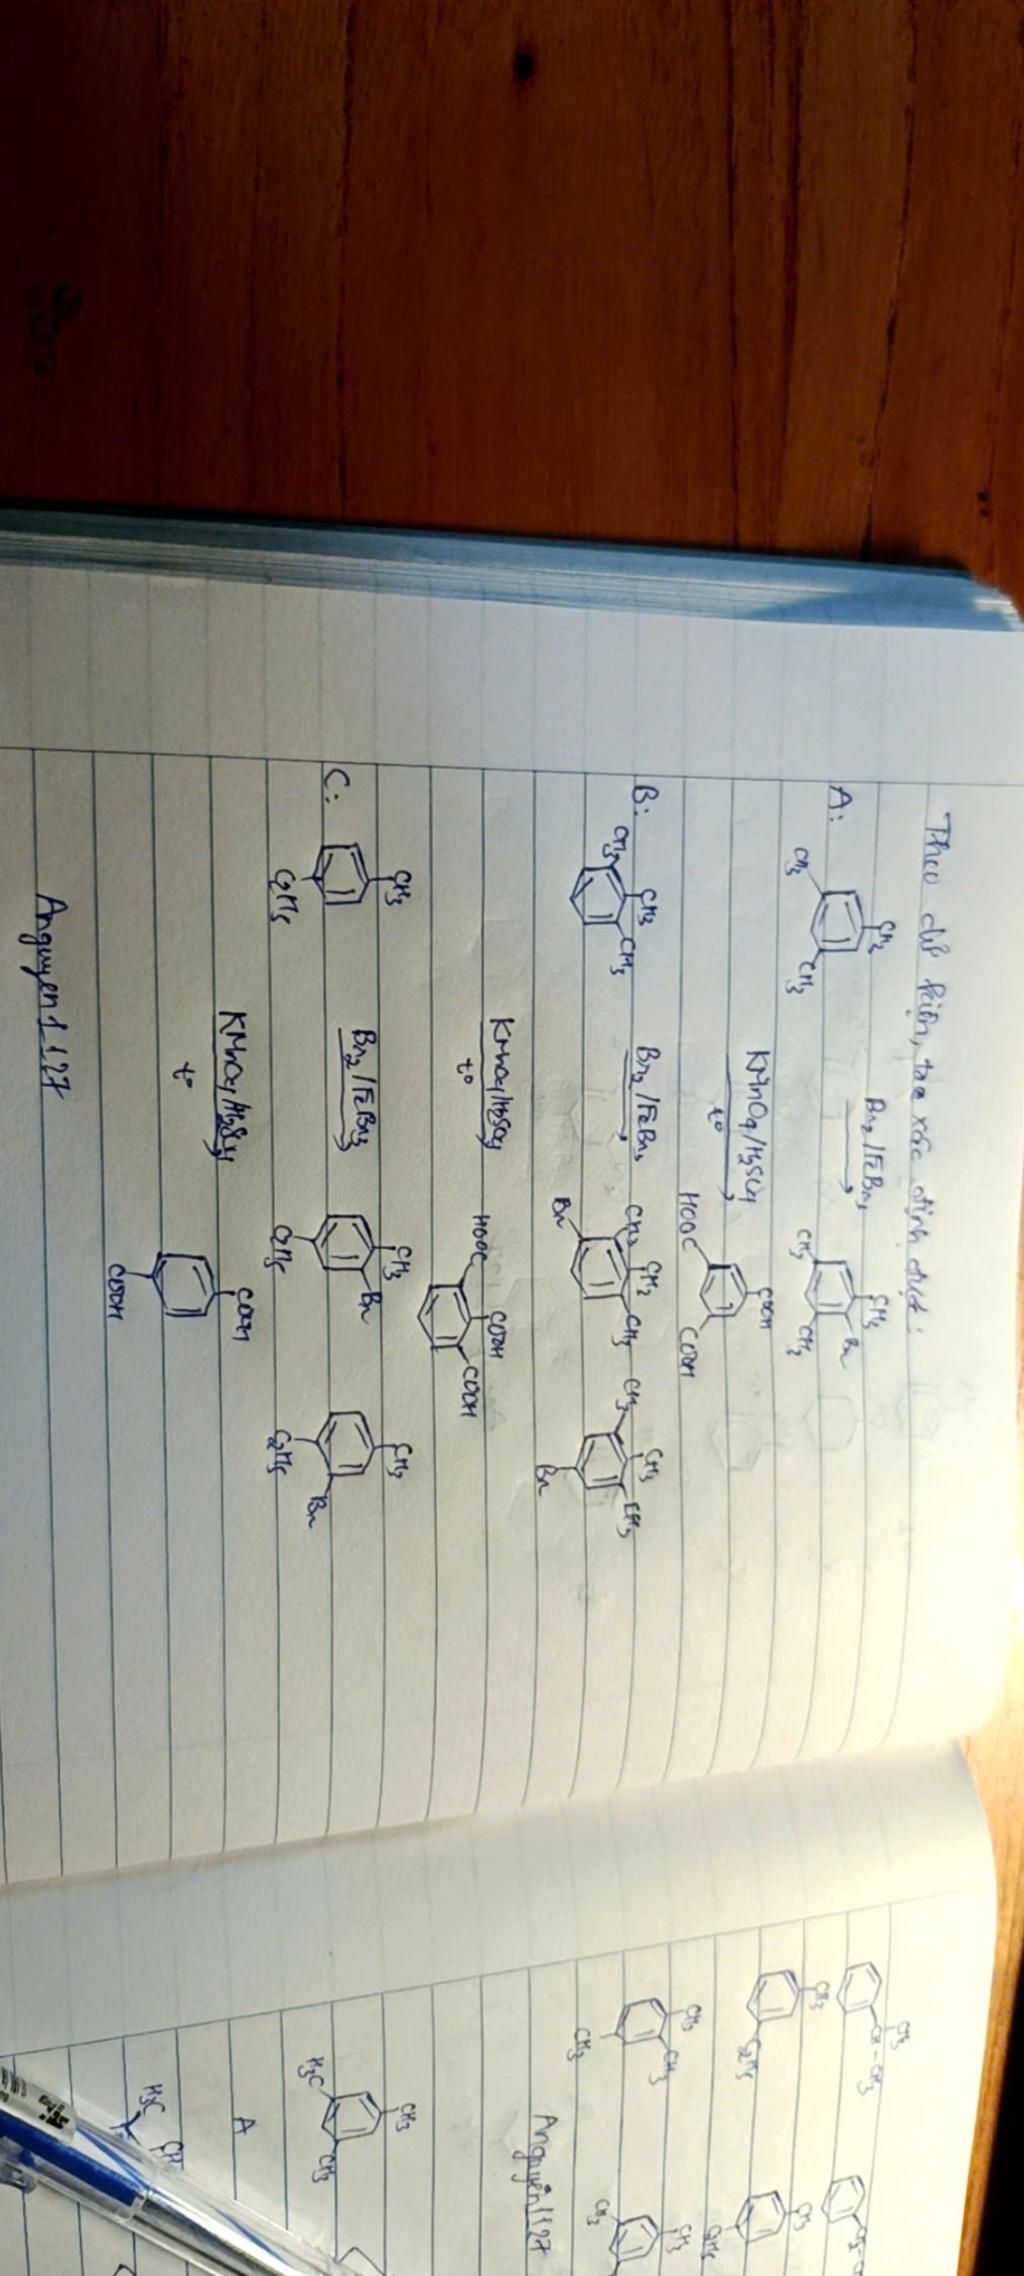 Theo dữ kiện, ta xác định được:
A:
CH3
CH3
CH3
Br2/FeBr3
CH3
CH3
Br
CH3
KMnO4/H2SO4
t°
HOOC
COOH
COOH
B:
CH3
CH3
CH3
Br2/FeBr3
CH3
CH3
CH3
Br
CH3
CH3
CH3
Br
KMnO4/H2SO4
t°
HOOC
COOH
COOH
C:
CH3
C2H5
Br2/FeBr3
CH3
Br
C2H5
CH3
Br
C2H5
KMnO4/H2SO4
t°
COOH
COOH
Anguyen1127
CH3
CH-CH3
CH3
C2H5
CH3
C2H5
CH3
CH3
CH3
CH3
CH3
Anguyên1127
CH3
H3C
CH3
A
H3C
CH